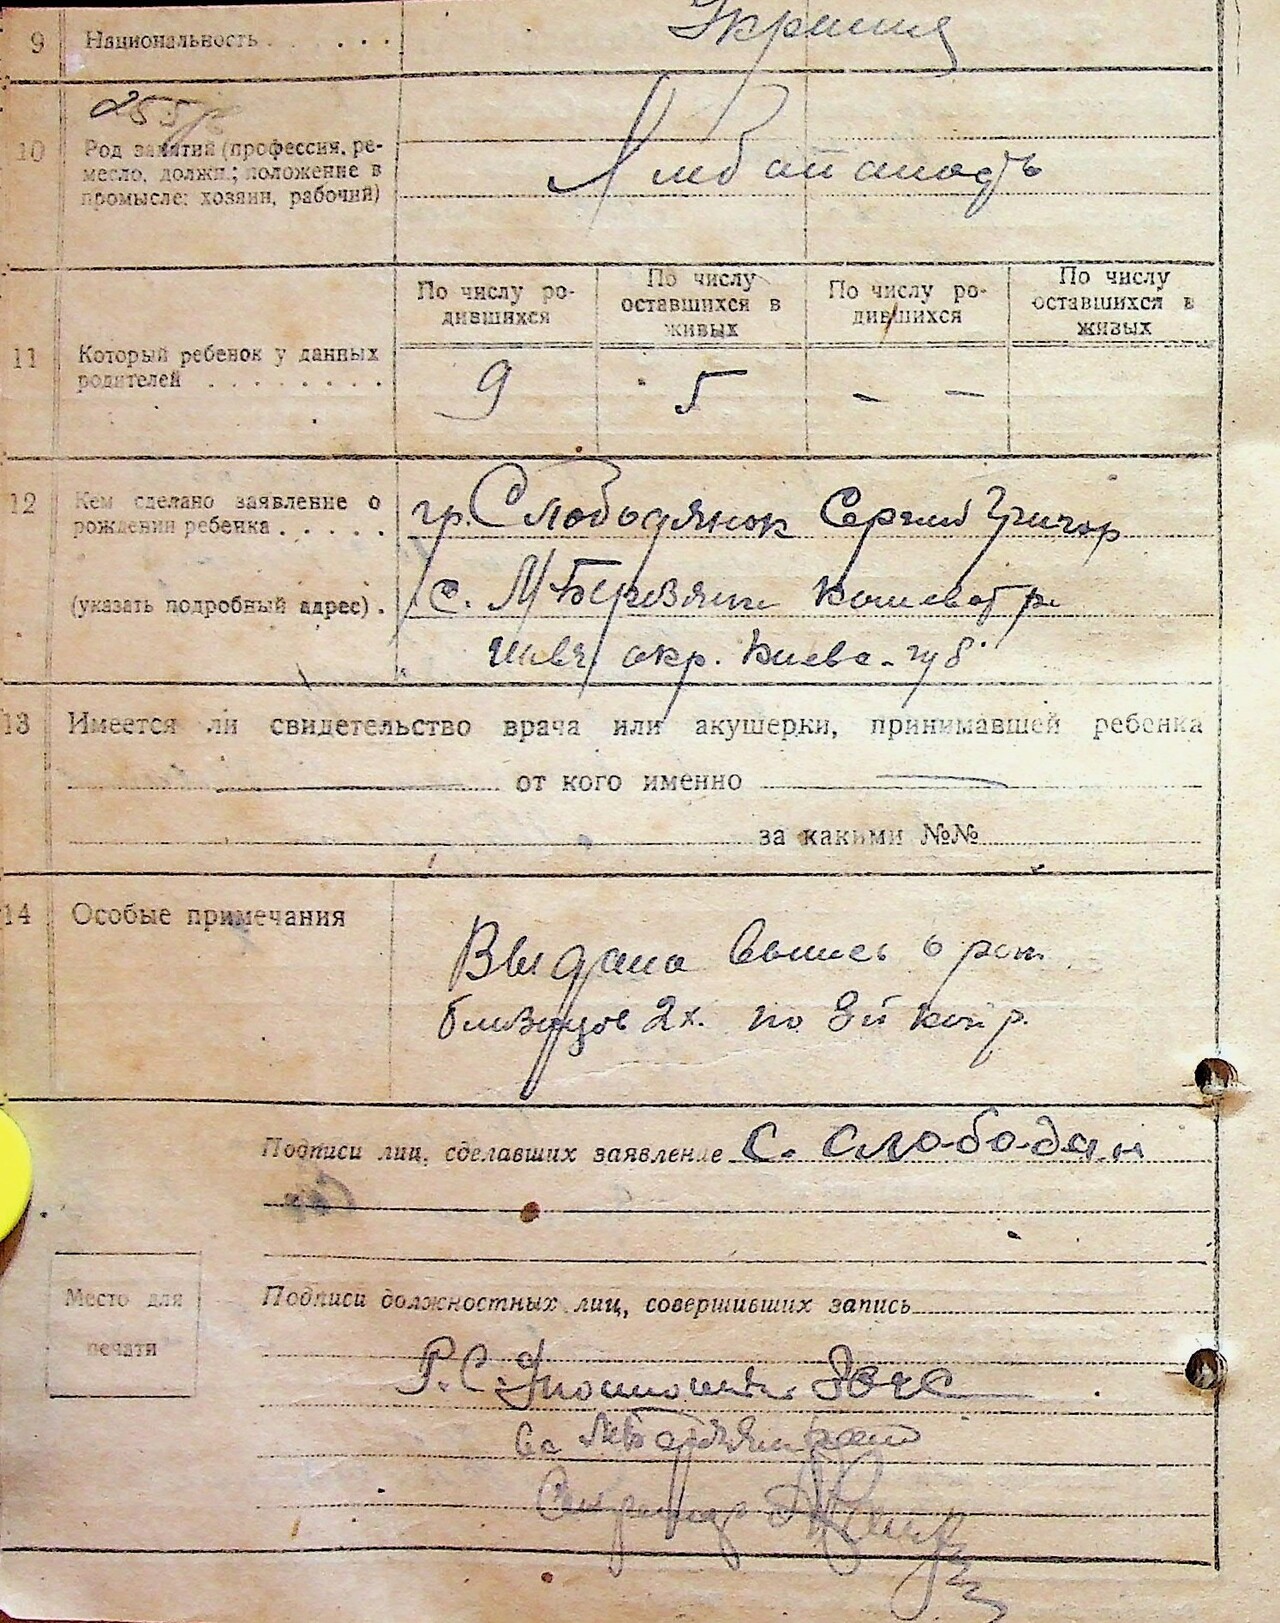 9 Национальность . . . . .
Украин
255р
10 Род занятий (профессия, ре-
месло, должн.; положение в
промысле: хозяин, рабочий)
Хлебопашец
По числу ро-
дившихся
По числу
оставшихся в
живых
По числу ро-
дившихся
По числу
оставшихся в
живых
11 Который ребенок у данных
родителей . . . . . . . .
9 5 — —
12 Кем сделано заявление о
рождении ребенка . . . . .
(указать подробный адрес) .
гр. Слободянюк Сергий Григор
с. М Березянка Кошеват р.
окр. Киевс. губ.
13 Имеется ли свидетельство врача или акушерки, принимавшей ребенка
от кого именно
за какими №№
14 Особые примечания
Выдана выпись о рож.
близнцов 2х. по 3й
Подписи лиц, сделавших заявление С. Слободян
Место для
печати
Подписи должностных лиц, совершивших запись
Р.С. Загс
Секретар